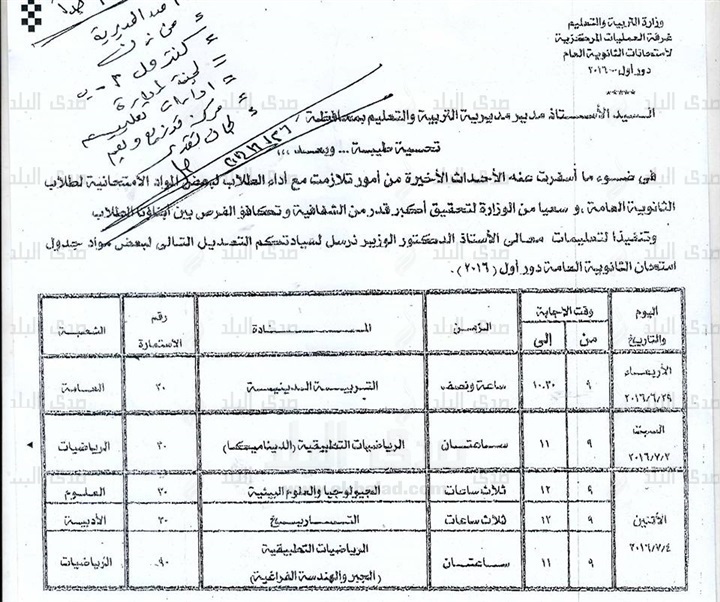 وزارة التربية والتعليم
غرفة العمليات المركزية
لامتحانات الثانوية العام
دور أول ٢٠١٦
*****
السيد الأستاذ مدير مديرية التربية والتعليم بمحافظة /
تحية طيبة ... وبعد ،،،
فى ضوء ما أسفرت عنه الأحداث الأخيرة من أمور تلازمت مع أداء الطلاب لبعض المواد الامتحانية لطلاب
الثانوية العامة ، و سعيا من الوزارة لتحقيق أكبر قدر من الشفافية وتكافؤ الفرص بين أبناؤنا الطلاب
وتنفيذا لتعليمات معالى الأستاذ الدكتور الوزير نرسل لسيادتكم التعديل التالى لبعض مواد جدول
امتحان الثانوية العامة دور أول (٢٠١٦) .
اليوم والتاريخ وقت الإجابة من إلى الزمن المادة رقم الاستمارة الشعبة
الأربعاء ٢٠١٦/٦/٢٩ ٩ ١٠.٣٠ ساعة ونصف التربية الدينية ٢٠ العامة
السبت ٢٠١٦/٧/٢ ٩ ١١ ساعتان الرياضيات التطبيقية (الديناميكا) ٣٠ الرياضيات
الأثنين ٢٠١٦/٧/٤ ٩ ١٢ ثلاث ساعات الجيولوجيا والعلوم البيئية ٣٠ العلوم
٩ ١٢ ثلاث ساعات التاريخ ٣٠ الأدبية
٩ ١١ ساعتان الرياضيات التطبيقية (الجبر والهندسة الفراغية) ٩٠ الرياضيات
صدى البلد